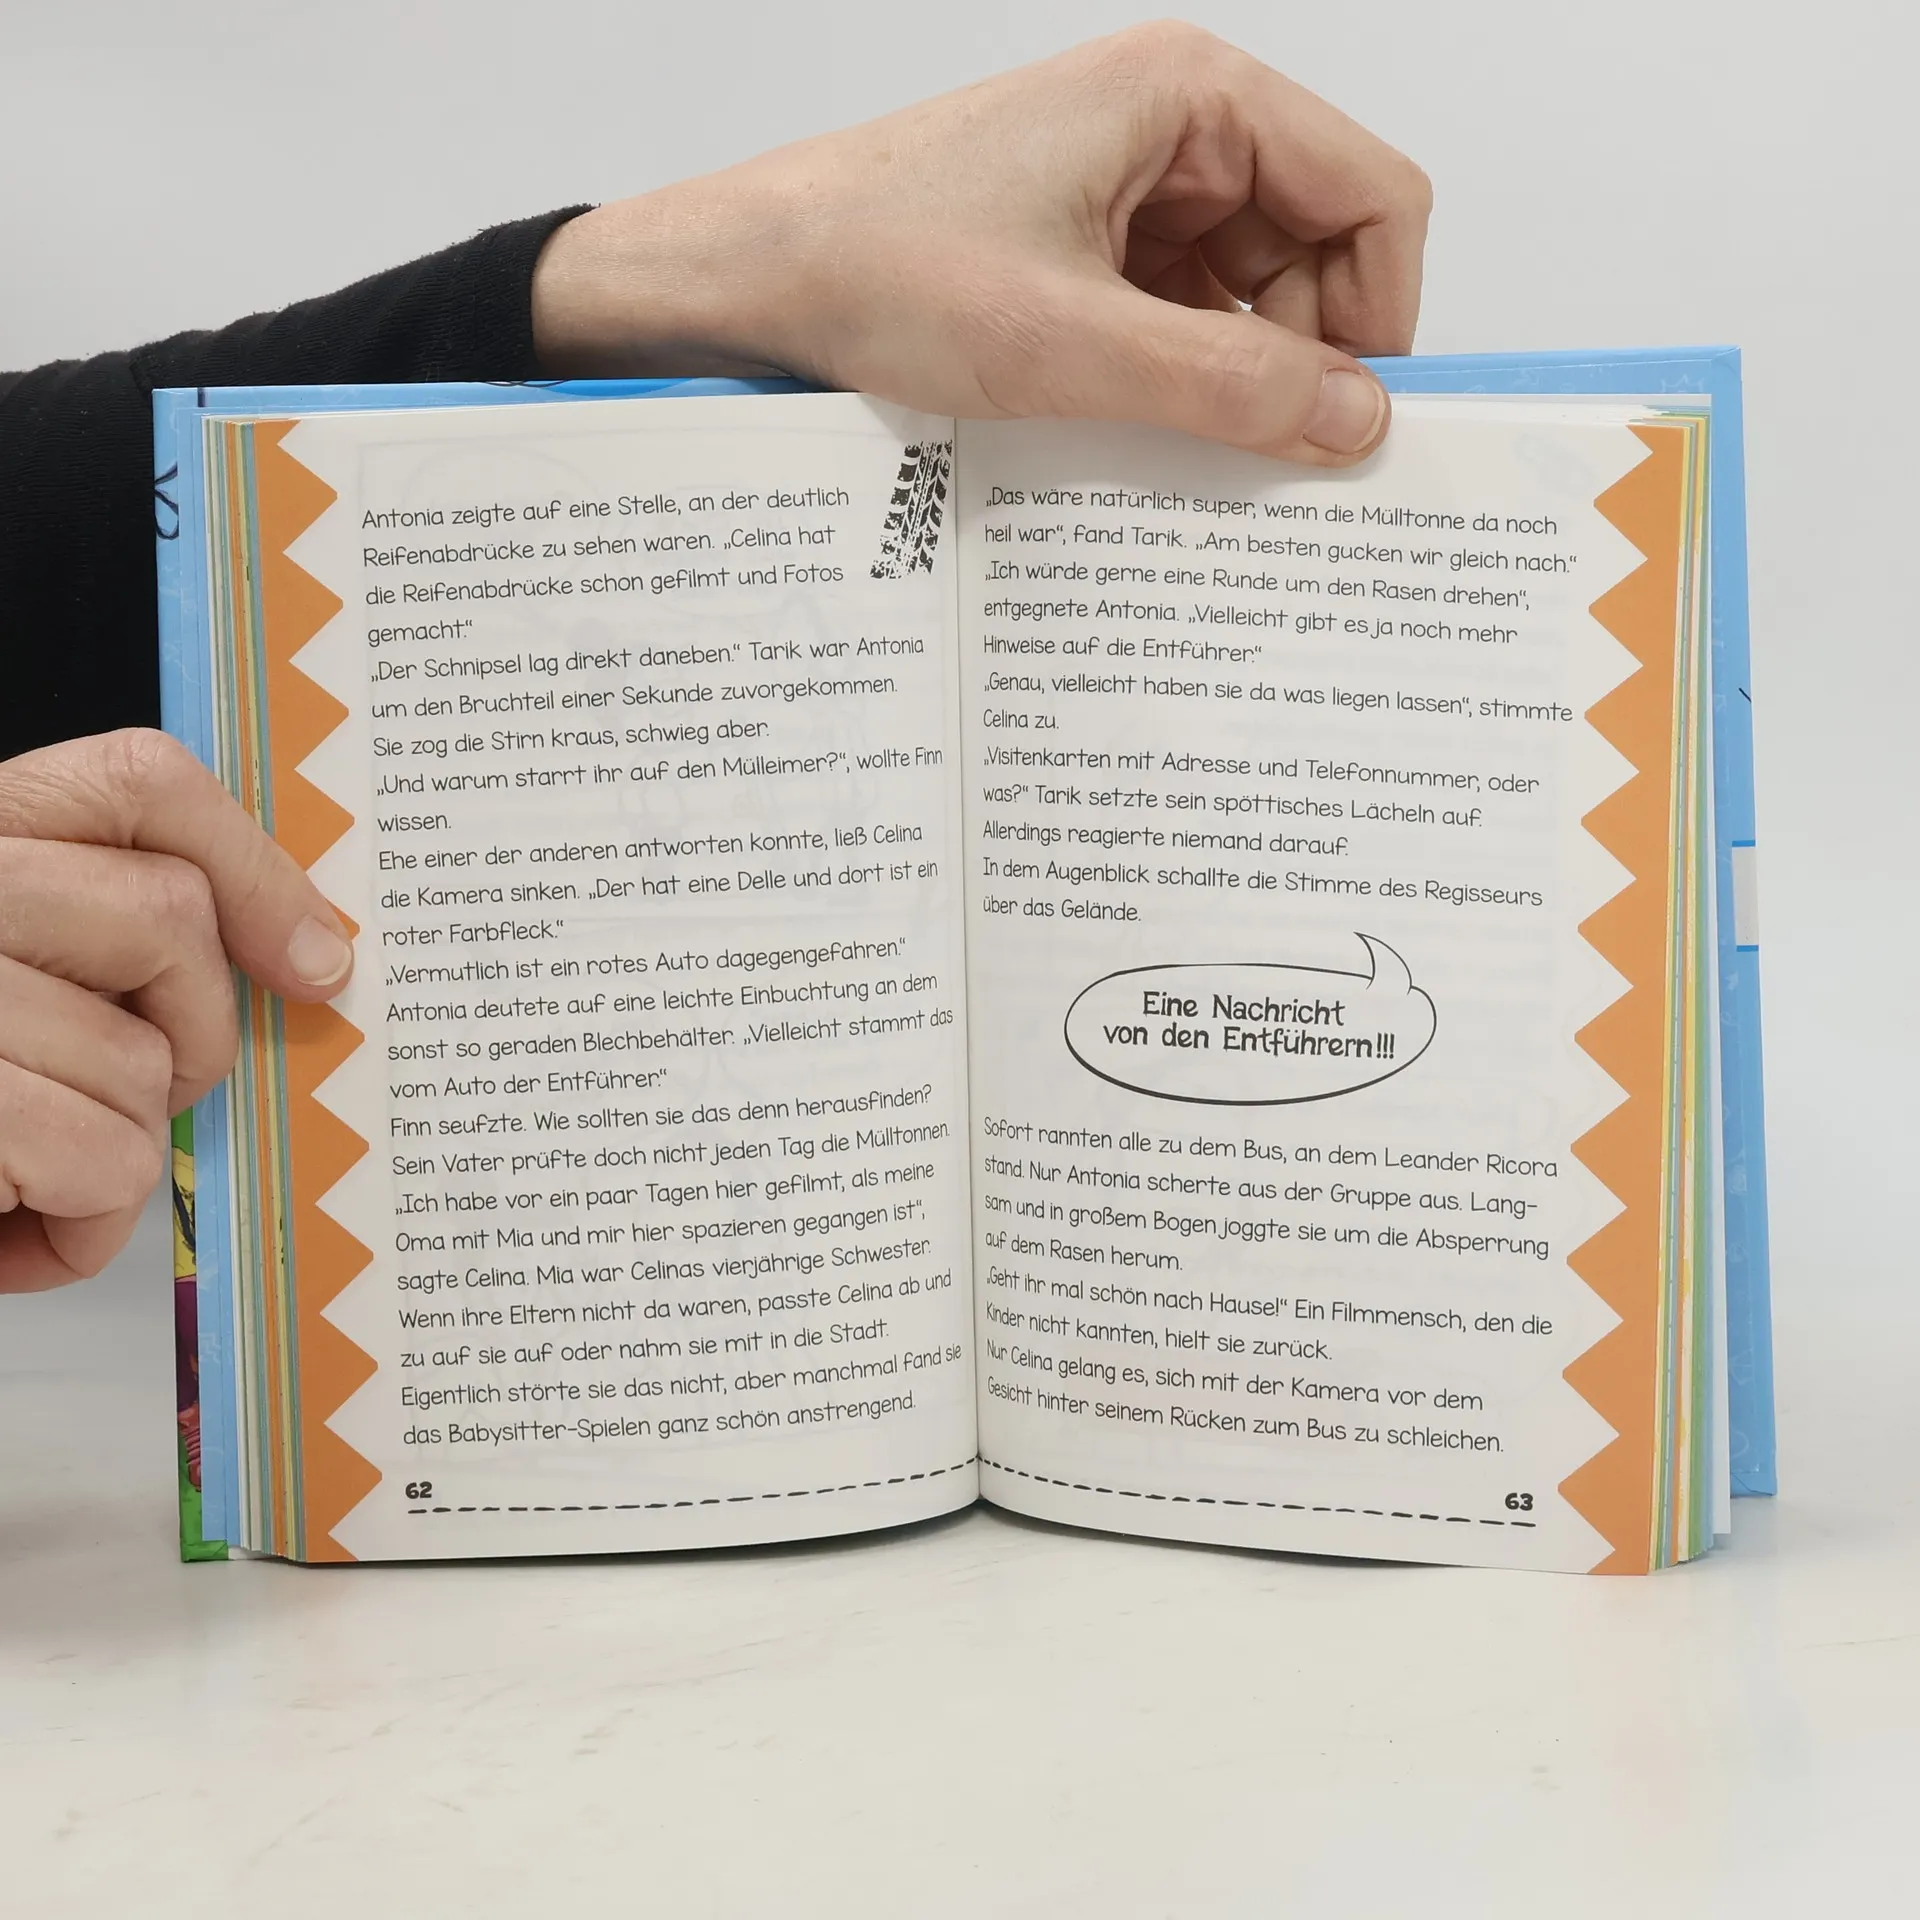 Antonia zeigte auf eine Stelle, an der deutlich
Reifenabdrücke zu sehen waren. „Celina hat
die Reifenabdrücke schon gefilmt und Fotos
gemacht.“
„Der Schnipsel lag direkt daneben.“ Tarik war Antonia
um den Bruchteil einer Sekunde zuvorgekommen.
Sie zog die Stirn kraus, schwieg aber.
„Und warum starrt ihr auf den Mülleimer?“, wollte Finn
wissen.
Ehe einer der anderen antworten konnte, ließ Celina
die Kamera sinken. „Der hat eine Delle und dort ist ein
roter Farbfleck.“
„Vermutlich ist ein rotes Auto dagegengefahren.“
Antonia deutete auf eine leichte Einbuchtung an dem
sonst so geraden Blechbehälter. „Vielleicht stammt das
vom Auto der Entführer.“
Finn seufzte. Wie sollten sie das denn herausfinden?
Sein Vater prüfte doch nicht jeden Tag die Mülltonnen.
„Ich habe vor ein paar Tagen hier gefilmt, als meine
Oma mit Mia und mir hier spazieren gegangen ist“,
sagte Celina. Mia war Celinas vierjährige Schwester.
Wenn ihre Eltern nicht da waren, passte Celina ab und
zu auf sie auf oder nahm sie mit in die Stadt.
Eigentlich störte sie das nicht, aber manchmal fand sie
das Babysitter-Spielen ganz schön anstrengend.
62
„Das wäre natürlich super, wenn die Mülltonne da noch
heil war“, fand Tarik. „Am besten gucken wir gleich nach.“
„Ich würde gerne eine Runde um den Rasen drehen“,
entgegnete Antonia. „Vielleicht gibt es ja noch mehr
Hinweise auf die Entführer.“
„Genau, vielleicht haben sie da was liegen lassen“, stimmte
Celina zu.
„Visitenkarten mit Adresse und Telefonnummer, oder
was?“ Tarik setzte sein spöttisches Lächeln auf.
Allerdings reagierte niemand darauf.
In dem Augenblick schallte die Stimme des Regisseurs
über das Gelände.
Eine Nachricht
von den Entführern!!!
Sofort rannten alle zu dem Bus, an dem Leander Ricora
stand. Nur Antonia scherte aus der Gruppe aus. Lang-
sam und in großem Bogen joggte sie um die Absperrung
auf dem Rasen herum.
„Geht ihr mal schön nach Hause!“ Ein Filmmensch, den die
Kinder nicht kannten, hielt sie zurück.
Nur Celina gelang es, sich mit der Kamera vor dem
Gesicht hinter seinem Rücken zum Bus zu schleichen.
63